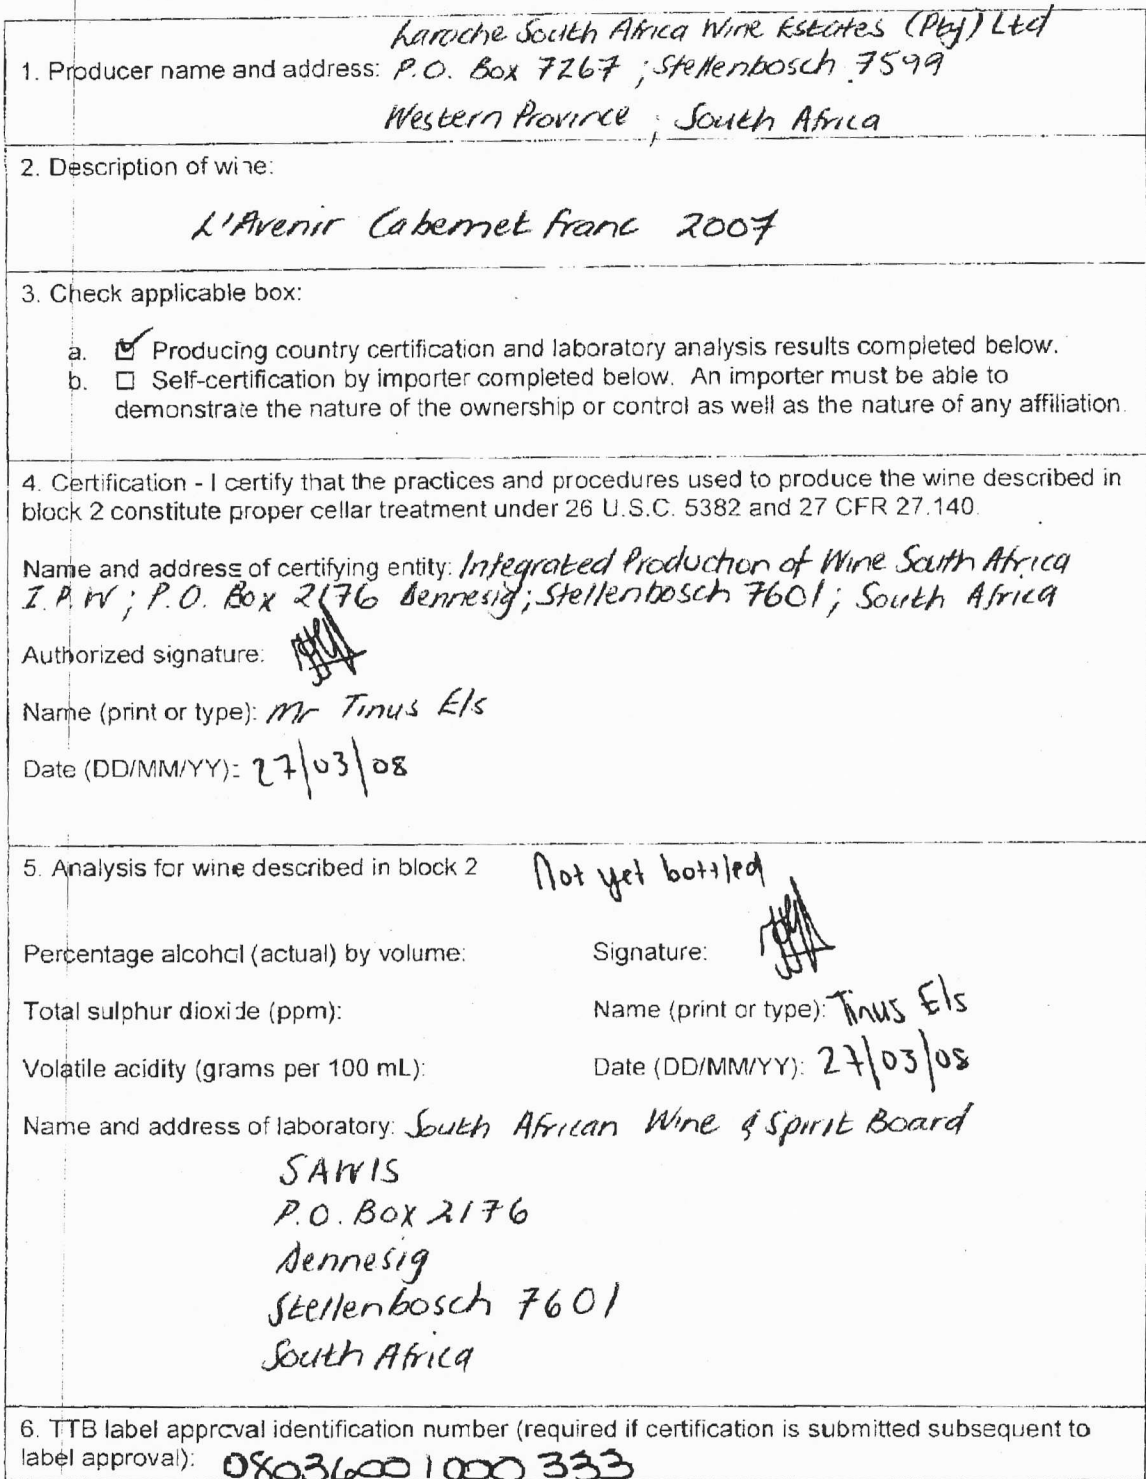 Laroche South Africa Wine Estates (Pty) Ltd
1. Producer name and address: P.O. Box 7267 ; Stellenbosch 7599
Western Province ; South Africa
2. Description of wine:
L'Avenir Cabernet franc 2007
3. Check applicable box:
a. ☑ Producing country certification and laboratory analysis results completed below.
b. ☐ Self-certification by importer completed below. An importer must be able to
demonstrate the nature of the ownership or control as well as the nature of any affiliation.
4. Certification - I certify that the practices and procedures used to produce the wine described in
block 2 constitute proper cellar treatment under 26 U.S.C. 5382 and 27 CFR 27.140.
Name and address of certifying entity: Integrated Production of Wine South Africa
I.P.W; P.O. Box 2176 Dennesig; Stellenbosch 7601; South Africa
Authorized signature:
Name (print or type): Mr Tinus Els
Date (DD/MM/YY): 27/03/08
5. Analysis for wine described in block 2 Not yet bottled
Percentage alcohol (actual) by volume: Signature:
Total sulphur dioxide (ppm): Name (print or type): Tinus Els
Volatile acidity (grams per 100 mL): Date (DD/MM/YY): 27/03/08
Name and address of laboratory: South African Wine & Spirit Board
SAWIS
P.O. Box 2176
Dennesig
Stellenbosch 7601
South Africa
6. TTB label approval identification number (required if certification is submitted subsequent to
label approval): 08036001000333